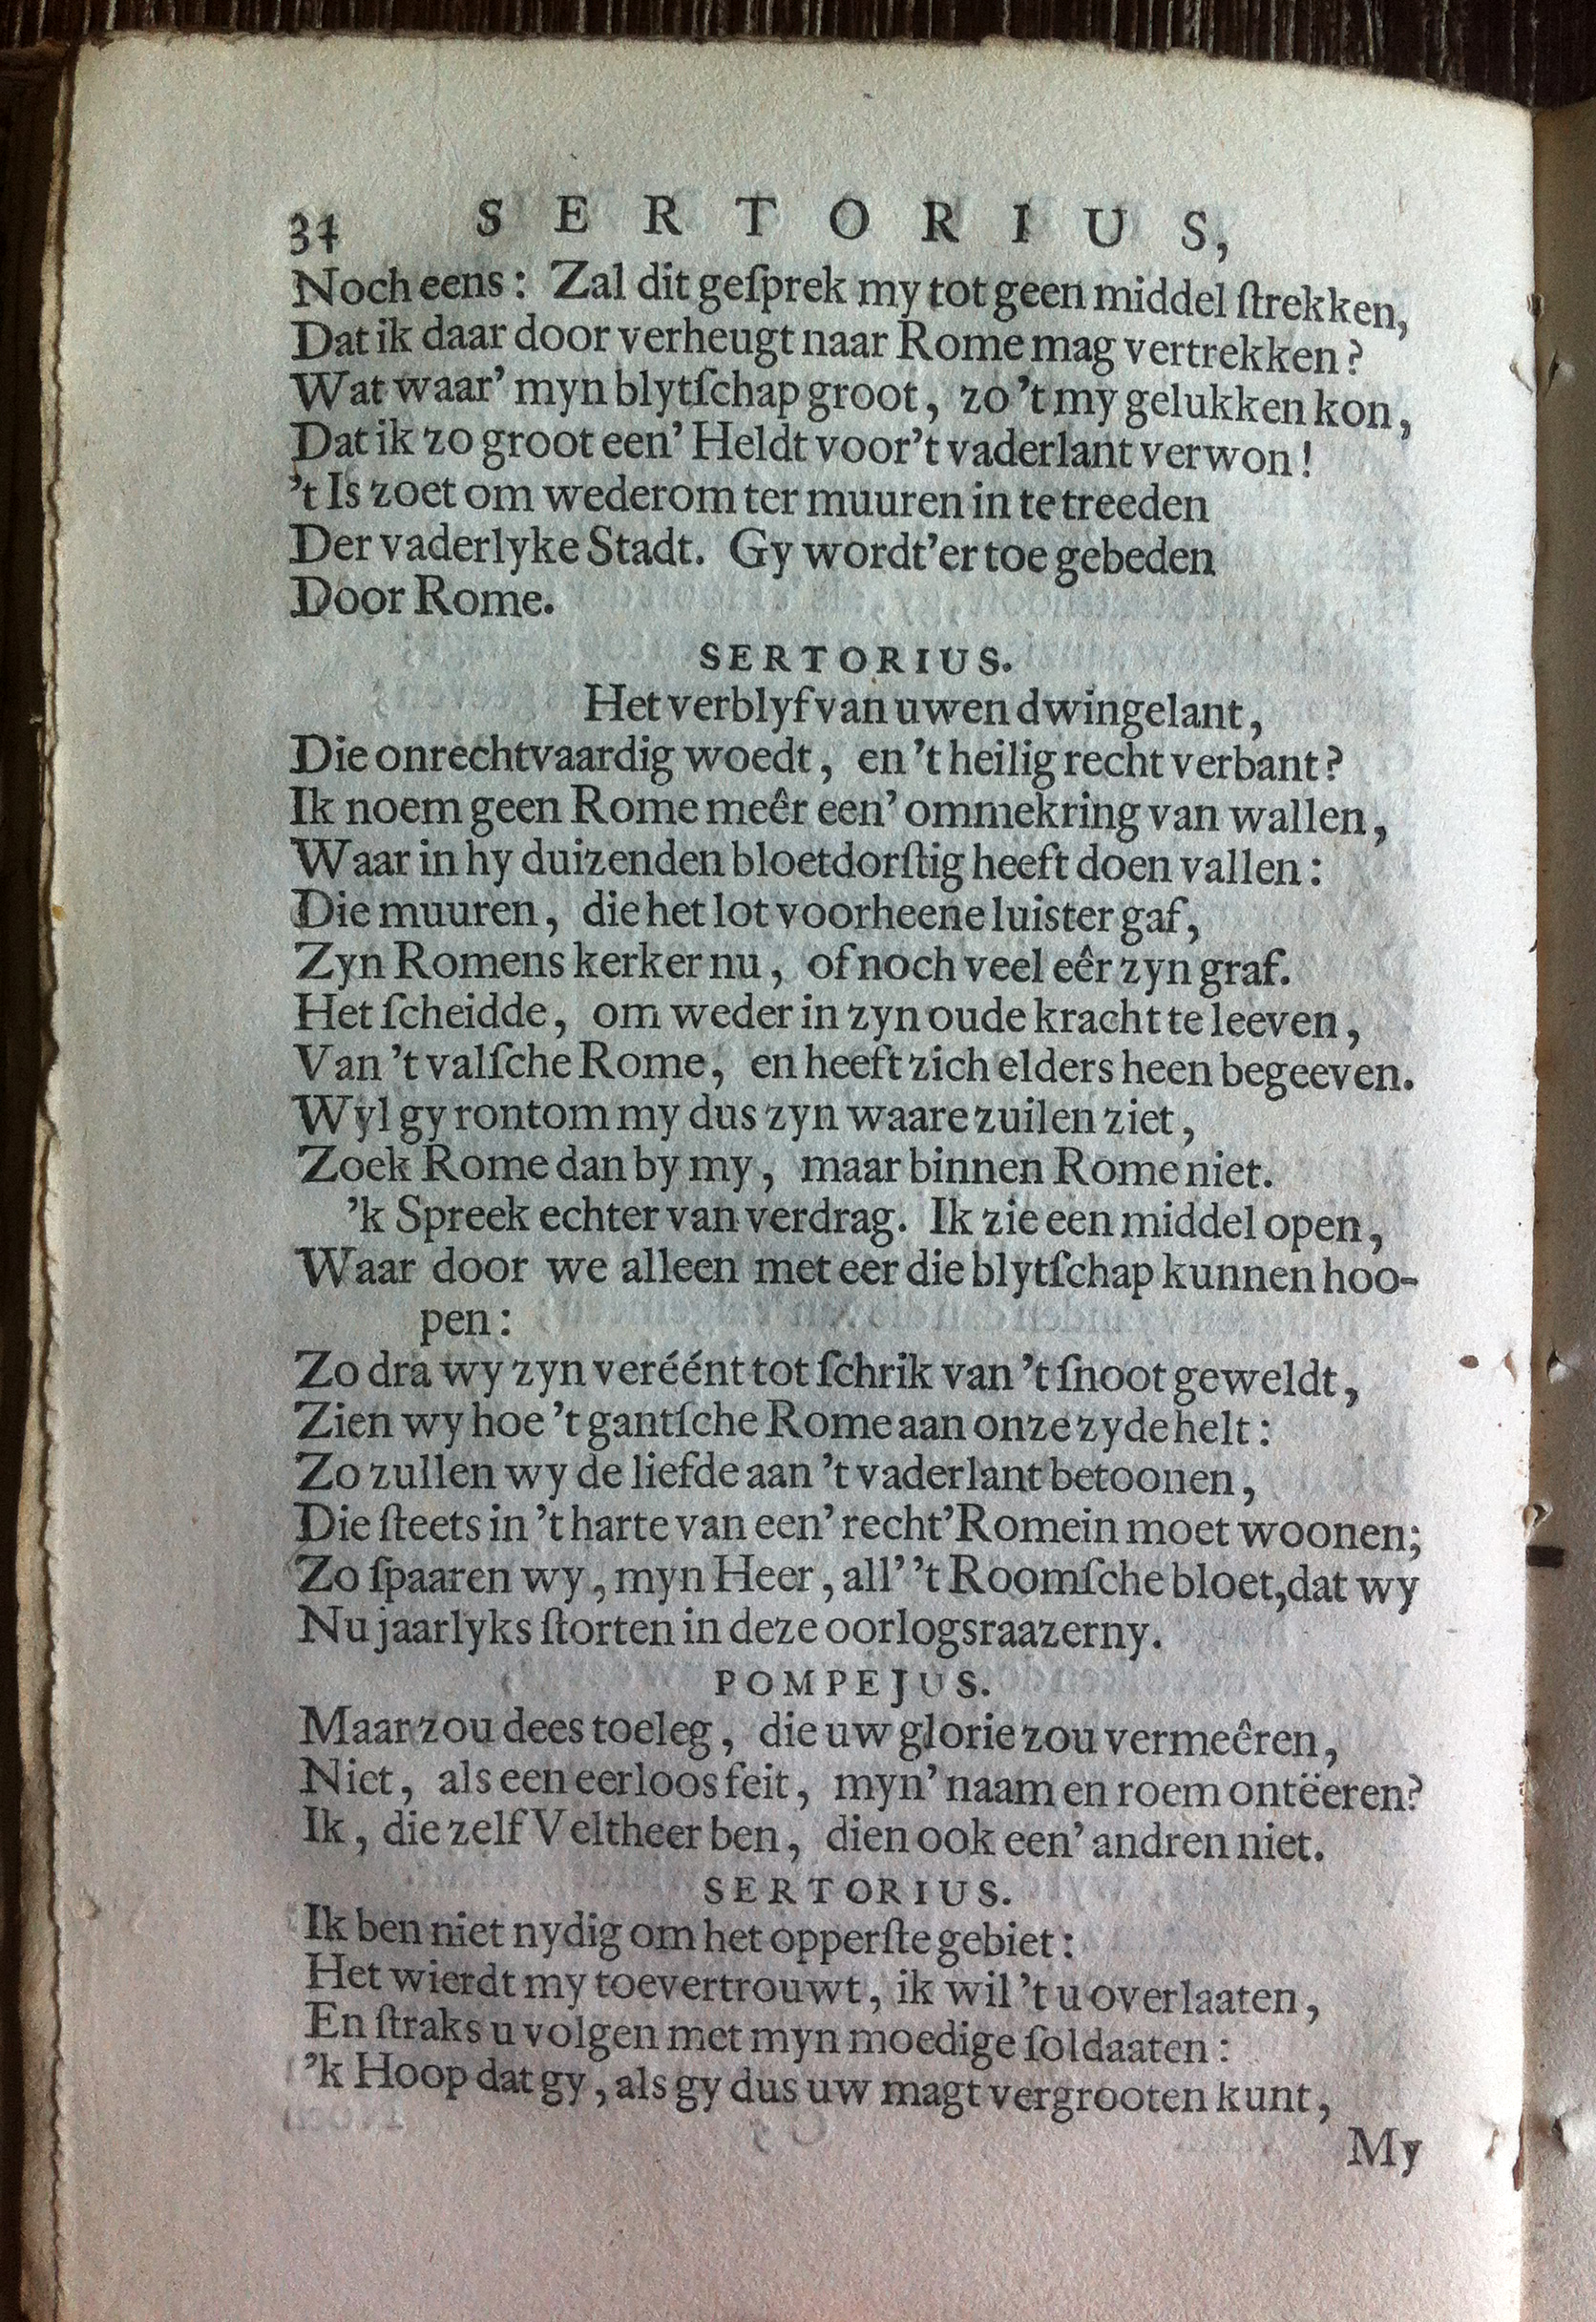 34 SERTORIUS,
Noch eens: Zal dit geſprek my tot geen middel ſtrekken,
Dat ik daar door verheugt naar Rome mag vertrekken?
Wat waar' myn blytſchap groot, zo 't my gelukken kon,
Dat ik zo groot een' Heldt voor 't vaderlant verwon!
't Is zoet om wederom ter muuren in te treeden
Der vaderlyke Stadt. Gy wordt'er toe gebeden
Door Rome.
SERTORIUS.
Het verblyf van uwen dwingelant,
Die onrechtvaardig woedt, en 't heilig recht verbant?
Ik noem geen Rome meêr een' ommekring van wallen,
Waar in hy duizenden bloetdorſtig heeft doen vallen:
Die muuren, die het lot voorheene luister gaf,
Zyn Romens kerker nu, of noch veel eêr zyn graf.
Het ſcheidde, om weder in zyn oude kracht te leeven,
Van 't valſche Rome, en heeft zich elders heen begeeven.
Wyl gy rontom my dus zyn waare zuilen ziet,
Zoek Rome dan by my, maar binnen Rome niet.
'k Spreek echter van verdrag. Ik zie een middel open,
Waar door we alleen met eer die blytſchap kunnen hoo-
pen:
Zo dra wy zyn veréént tot ſchrik van 't ſnoot geweldt,
Zien wy hoe 't gantſche Rome aan onze zyde helt:
Zo zullen wy de liefde aan 't vaderlant betoonen,
Die ſteets in 't harte van een' recht' Romein moet woonen;
Zo ſpaaren wy, myn Heer, all' 't Roomſche bloet, dat wy
Nu jaarlyks ſtorten in deze oorlogsraazerny.
POMPEJUS.
Maar zou dees toeleg, die uw glorie zou vermeêren,
Niet, als een eerloos feit, myn' naam en roem ontëeren?
Ik, die zelf Veltheer ben, dien ook een' andren niet.
SERTORIUS.
Ik ben niet nydig om het opperſte gebiet:
Het wierdt my toevertrouwt, ik wil 't u overlaaten,
En ſtraks u volgen met myn moedige ſoldaaten:
'k Hoop dat gy, als gy dus uw magt vergrooten kunt,
My